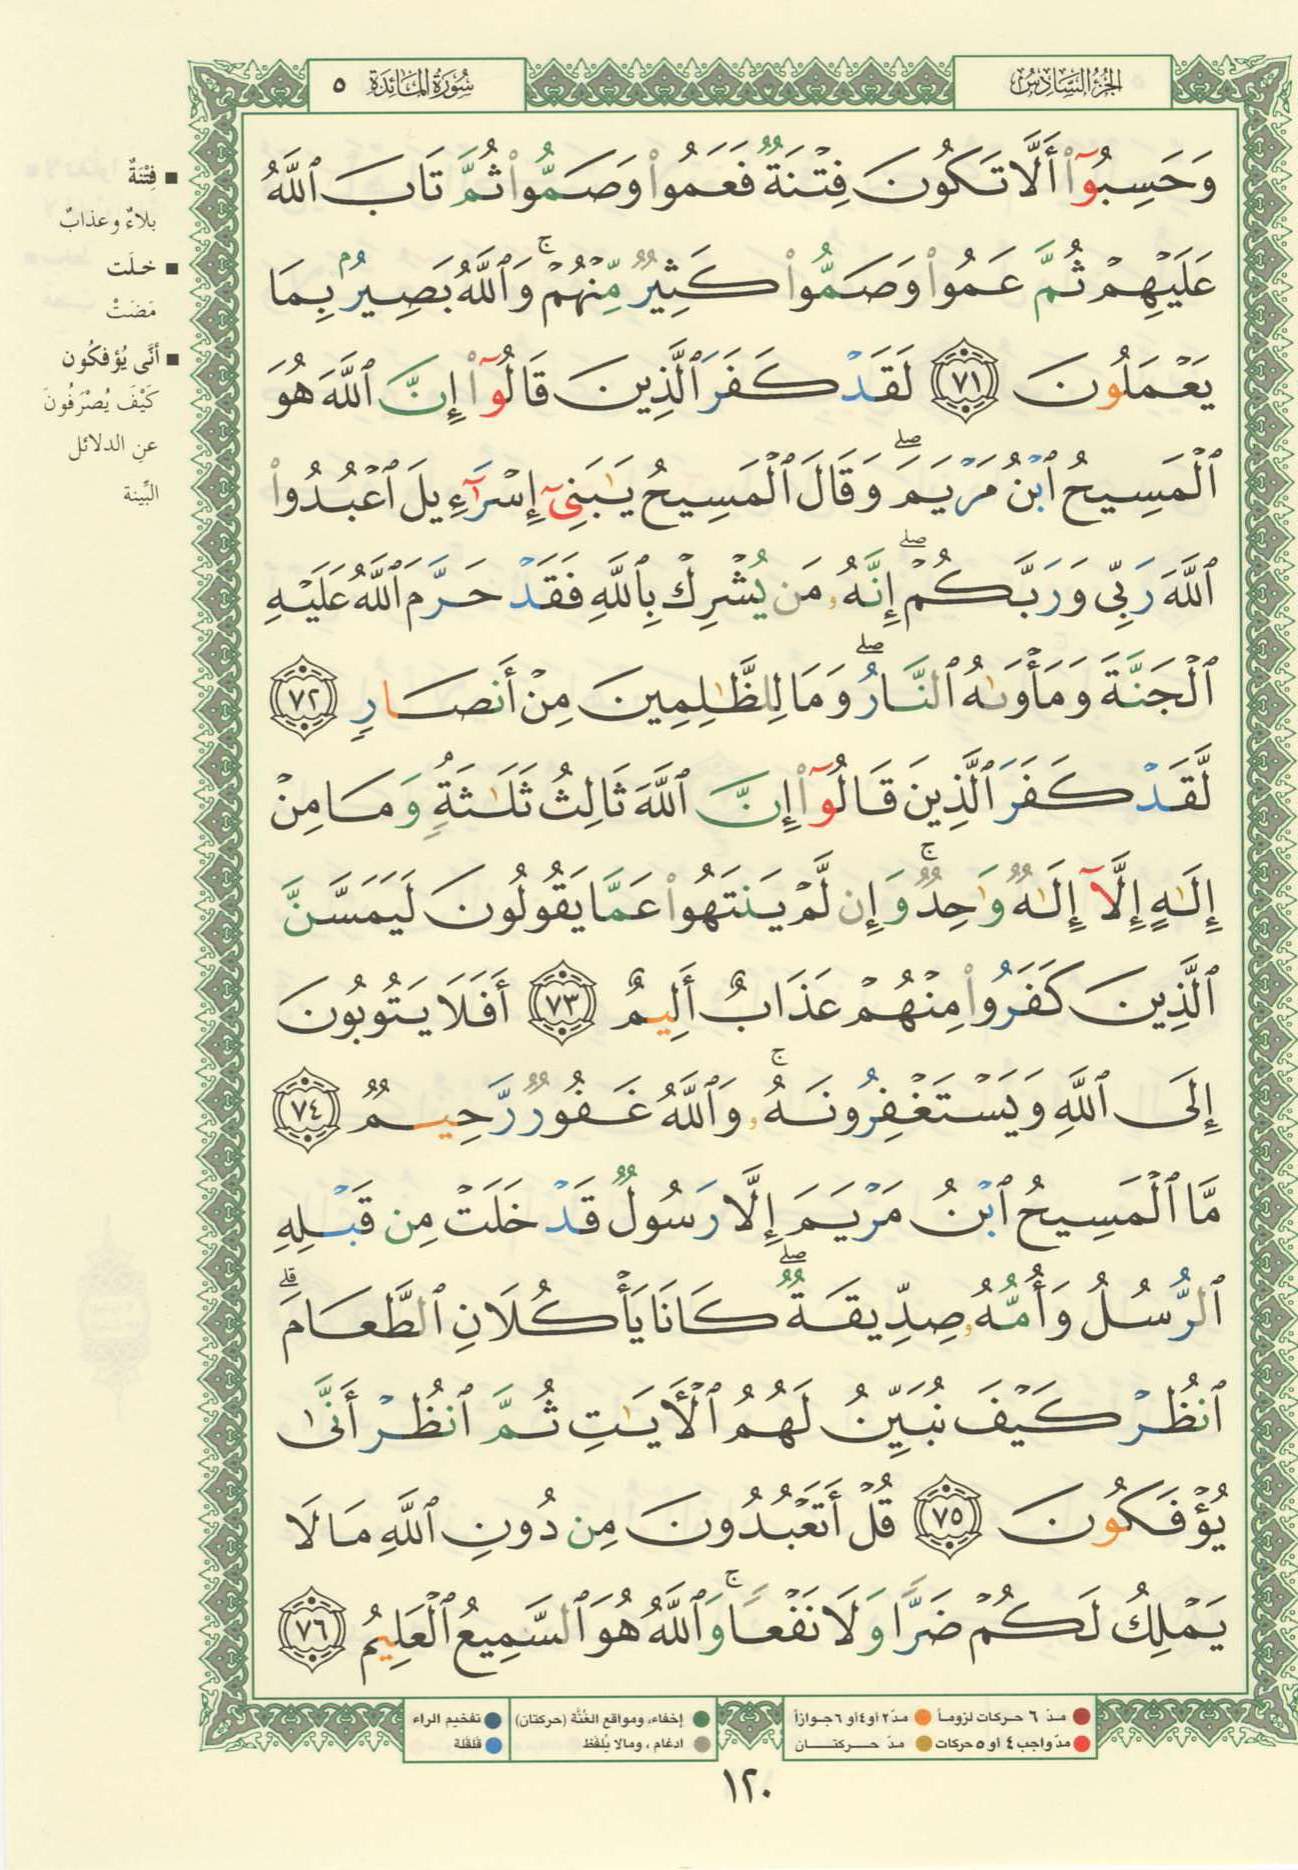 الجزء السادس
سورة المائدة ٥
وَحَسِبُوٓا۟ أَلَّا تَكُونَ فِتْنَةٌ فَعَمُوا۟ وَصَمُّوا۟ ثُمَّ تَابَ ٱللَّهُ
عَلَيْهِمْ ثُمَّ عَمُوا۟ وَصَمُّوا۟ كَثِيرٌ مِّنْهُمْ ۚ وَٱللَّهُ بَصِيرٌۢ بِمَا
يَعْمَلُونَ ٧١ لَقَدْ كَفَرَ ٱلَّذِينَ قَالُوٓا۟ إِنَّ ٱللَّهَ هُوَ
ٱلْمَسِيحُ ٱبْنُ مَرْيَمَ ۖ وَقَالَ ٱلْمَسِيحُ يَـٰبَنِىٓ إِسْرَٰٓءِيلَ ٱعْبُدُوا۟
ٱللَّهَ رَبِّى وَرَبَّكُمْ ۖ إِنَّهُۥ مَن يُشْرِكْ بِٱللَّهِ فَقَدْ حَرَّمَ ٱللَّهُ عَلَيْهِ
ٱلْجَنَّةَ وَمَأْوَىٰهُ ٱلنَّارُ ۖ وَمَا لِلظَّـٰلِمِينَ مِنْ أَنصَارٍ ٧٢
لَّقَدْ كَفَرَ ٱلَّذِينَ قَالُوٓا۟ إِنَّ ٱللَّهَ ثَالِثُ ثَلَـٰثَةٍ وَمَا مِنْ
إِلَـٰهٍ إِلَّآ إِلَـٰهٌ وَٰحِدٌ ۚ وَإِن لَّمْ يَنتَهُوا۟ عَمَّا يَقُولُونَ لَيَمَسَّنَّ
ٱلَّذِينَ كَفَرُوا۟ مِنْهُمْ عَذَابٌ أَلِيمٌ ٧٣ أَفَلَا يَتُوبُونَ
إِلَى ٱللَّهِ وَيَسْتَغْفِرُونَهُۥ ۚ وَٱللَّهُ غَفُورٌ رَّحِيمٌ ٧٤
مَّا ٱلْمَسِيحُ ٱبْنُ مَرْيَمَ إِلَّا رَسُولٌ قَدْ خَلَتْ مِن قَبْلِهِ
ٱلرُّسُلُ وَأُمُّهُۥ صِدِّيقَةٌ ۖ كَانَا يَأْكُلَانِ ٱلطَّعَامَ ۗ
ٱنظُرْ كَيْفَ نُبَيِّنُ لَهُمُ ٱلْـَٔايَـٰتِ ثُمَّ ٱنظُرْ أَنَّىٰ
يُؤْفَكُونَ ٧٥ قُلْ أَتَعْبُدُونَ مِن دُونِ ٱللَّهِ مَا لَا
يَمْلِكُ لَكُمْ ضَرًّا وَلَا نَفْعًا ۚ وَٱللَّهُ هُوَ ٱلسَّمِيعُ ٱلْعَلِيمُ ٧٦
■ فِتْنَةٌ
بلاءٌ وعذابٌ
■ خلَت
مَضَتْ
■ أنَّى يُؤفكُون
كَيْفَ يُصْرَفُونَ
عنِ الدلائل
البَيِّنة
مدّ ٦ حركات لزوماً
مدّ ٢ أو ٤ أو ٦ جوازاً
مدّ واجب ٤ أو ٥ حركات
مدّ حركتان
إخفاء، ومواقع الغُنَّة (حركتان)
ادغام، ومالا يُلفَظ
تفخيم الراء
قلقلة
١٢٠